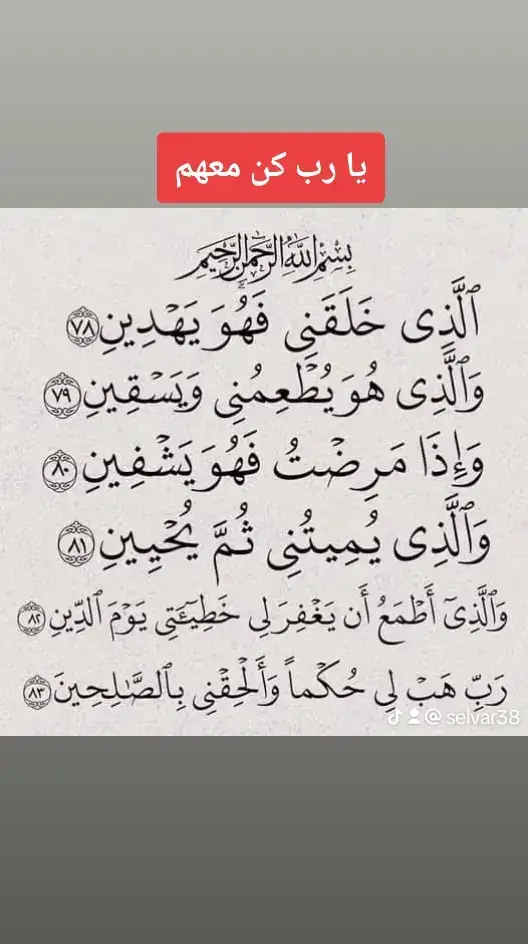 يا رب كن معهم
بِسْمِ اللَّهِ الرَّحْمَٰنِ الرَّحِيمِ
ٱلَّذِى خَلَقَنِى فَهُوَ يَهْدِينِ ٧٨
وَٱلَّذِى هُوَ يُطْعِمُنِى وَيَسْقِينِ ٧٩
وَإِذَا مَرِضْتُ فَهُوَ يَشْفِينِ ٨٠
وَٱلَّذِى يُمِيتُنِى ثُمَّ يُحْيِينِ ٨١
وَٱلَّذِىٓ أَطْمَعُ أَن يَغْفِرَ لِى خَطِيٓـَٔتِى يَوْمَ ٱلدِّينِ ٨٢
رَبِّ هَبْ لِى حُكْماً وَأَلْحِقْنِى بِٱلصَّٰلِحِينَ ٨٣
@ selvar38